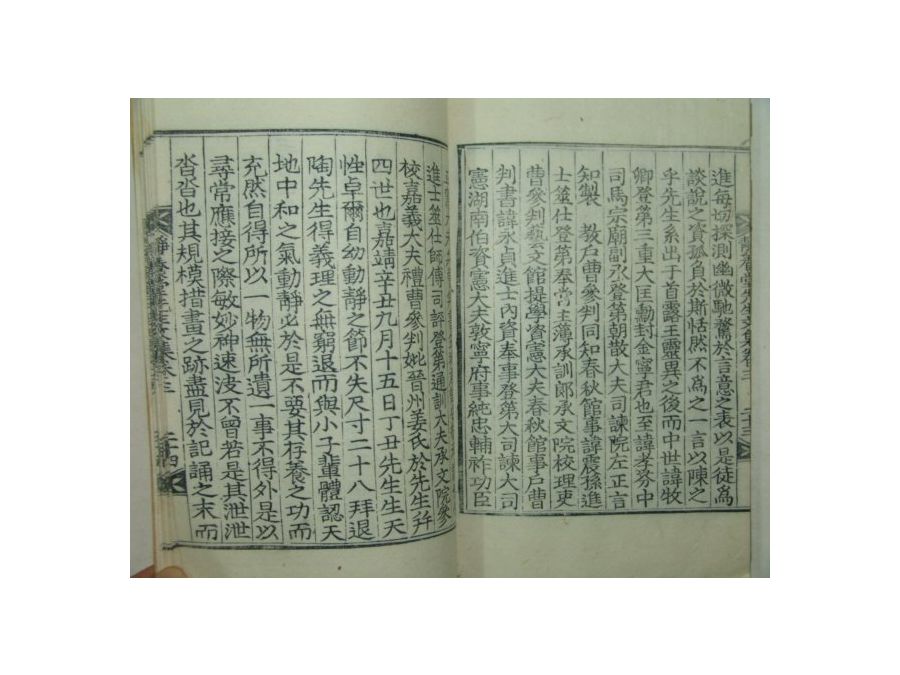 進每切探測幽微馳騖於言意之表以是徒爲
談說之資孤負於斯恬然不爲之一言以陳之
乎先生系出于首露王靈異之後而中世諱牧
卿登第三重大匡勳封金寧君也至諱孝芬中
司馬宗廟副丞登第朝散大夫司諫院左正言
知製 敎戶曹參判同知春秋館事諱震孫進
士筮仕登第奉常主薄承訓郎承文院校理吏
曹參判藝文館提學資憲大夫春秋館事戶曹
判書諱永貞進士內資奉事登第大司諫大司
憲湖南伯資憲大夫敦寧府事純忠輔祚功臣
先生文集卷三 二十三
進士筮仕師傅司評登第通訓大夫承文院參
校嘉義大夫禮曹參判妣晉州姜氏於先生幷
四世也嘉靖辛丑九月十五日丁丑先生生天
性卓爾自幼動靜之節不失尺寸二十八拜退
陶先生得義理之無窮退而與小子輩體認天
地中和之氣動靜必於是不要其存養之功而
充然自得所以一物無所遺一事不得外是以
尋常應接之際敏妙神速波不曾若是其泄泄
沓沓也其規模措畫之跡盡見於記誦之末而
靜 卷三 二十四